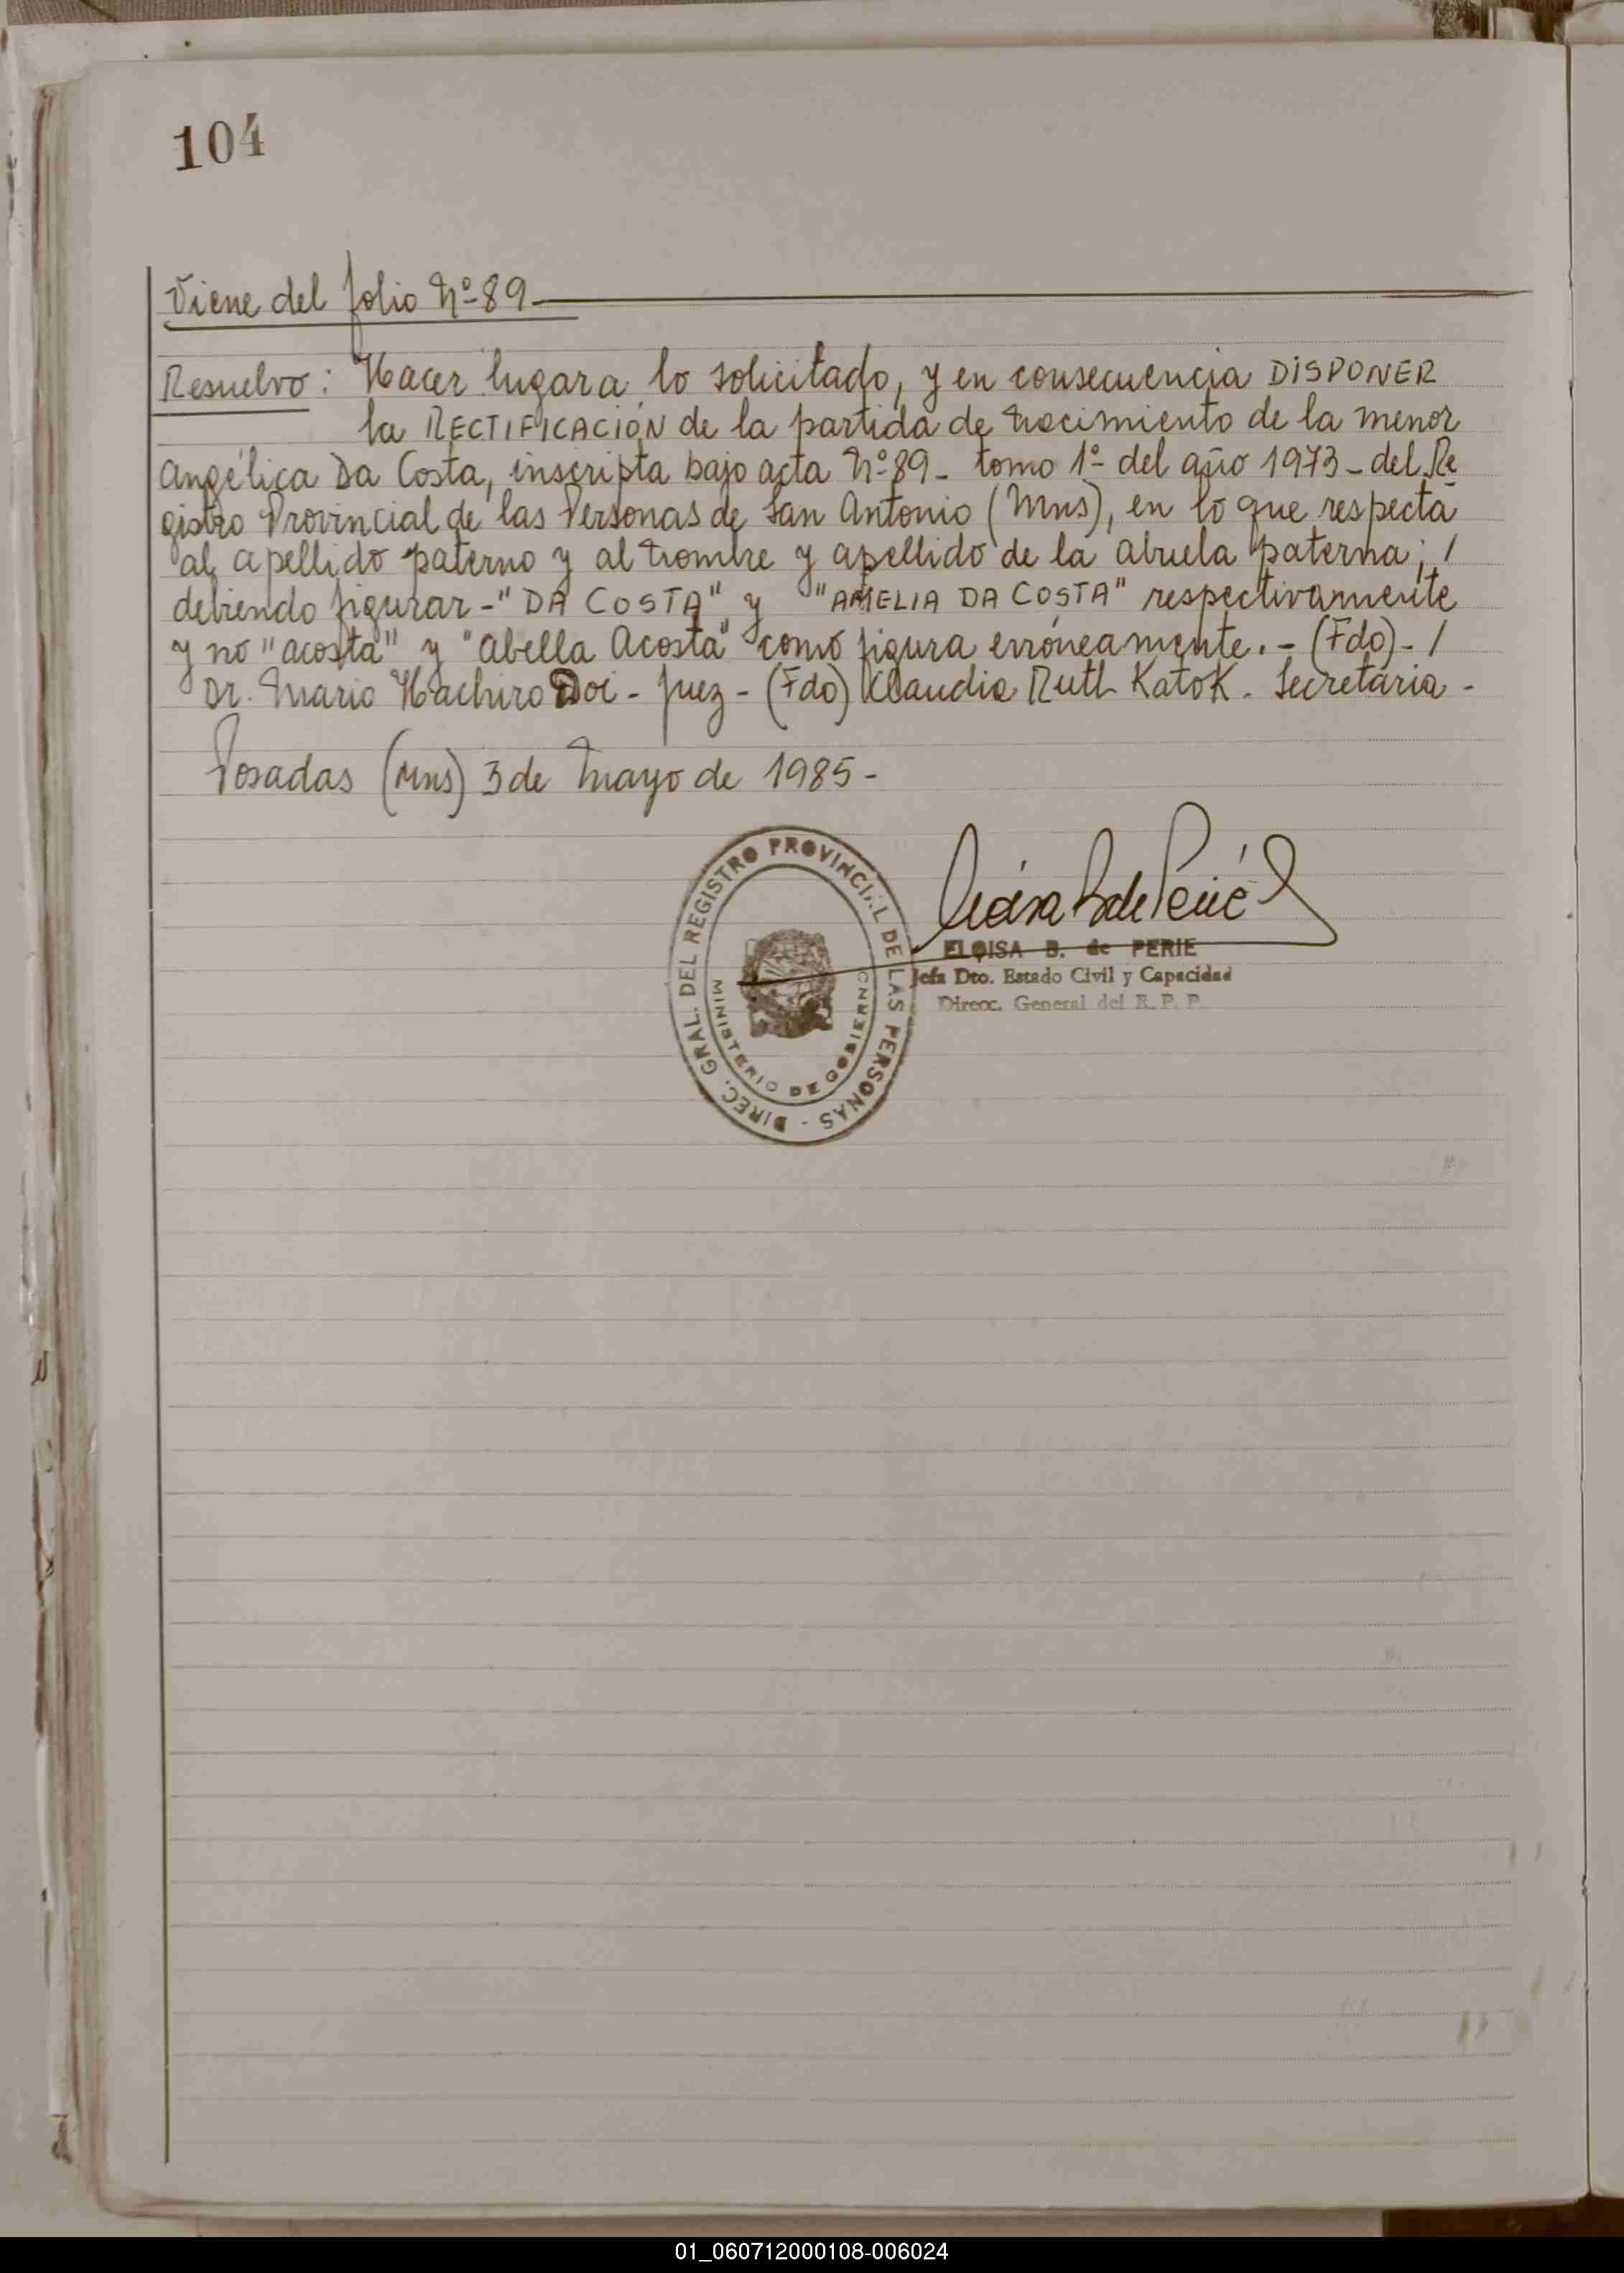 104
Viene del folio Nº 89-
Resuelvo: Hacer lugar a lo solicitado, y en consecuencia DISPONER
la RECTIFICACIÓN de la partida de Nacimiento de la menor
Angélica Da Costa, inscripta bajo acta Nº 89- tomo 1º- del año 1973- del Re
gistro Provincial de las Personas de San Antonio (Mns), en lo que respecta
al apellido paterno y al Nombre y apellido de la abuela paterna; /
debiendo figurar-"DA COSTA" y "AMELIA DA COSTA" respectivamente
y no "acosta" y "Abella Acosta" como figura erróneamente.- (Fdo)- /
Dr. Mario Hachiro Doi - Juez - (Fdo) Claudia Ruth Katok. Secretaria -
Posadas (Mns) 3 de Mayo de 1985-
DIREC. GRAL. DEL REGISTRO PROVINCIAL DE LAS PERSONAS -
MINISTERIO DE GOBIERNO
ELOISA B. de PERIE
Jefa Dto. Estado Civil y Capacidad
Direcc. General del R. P. P.
01_060712000108-006024